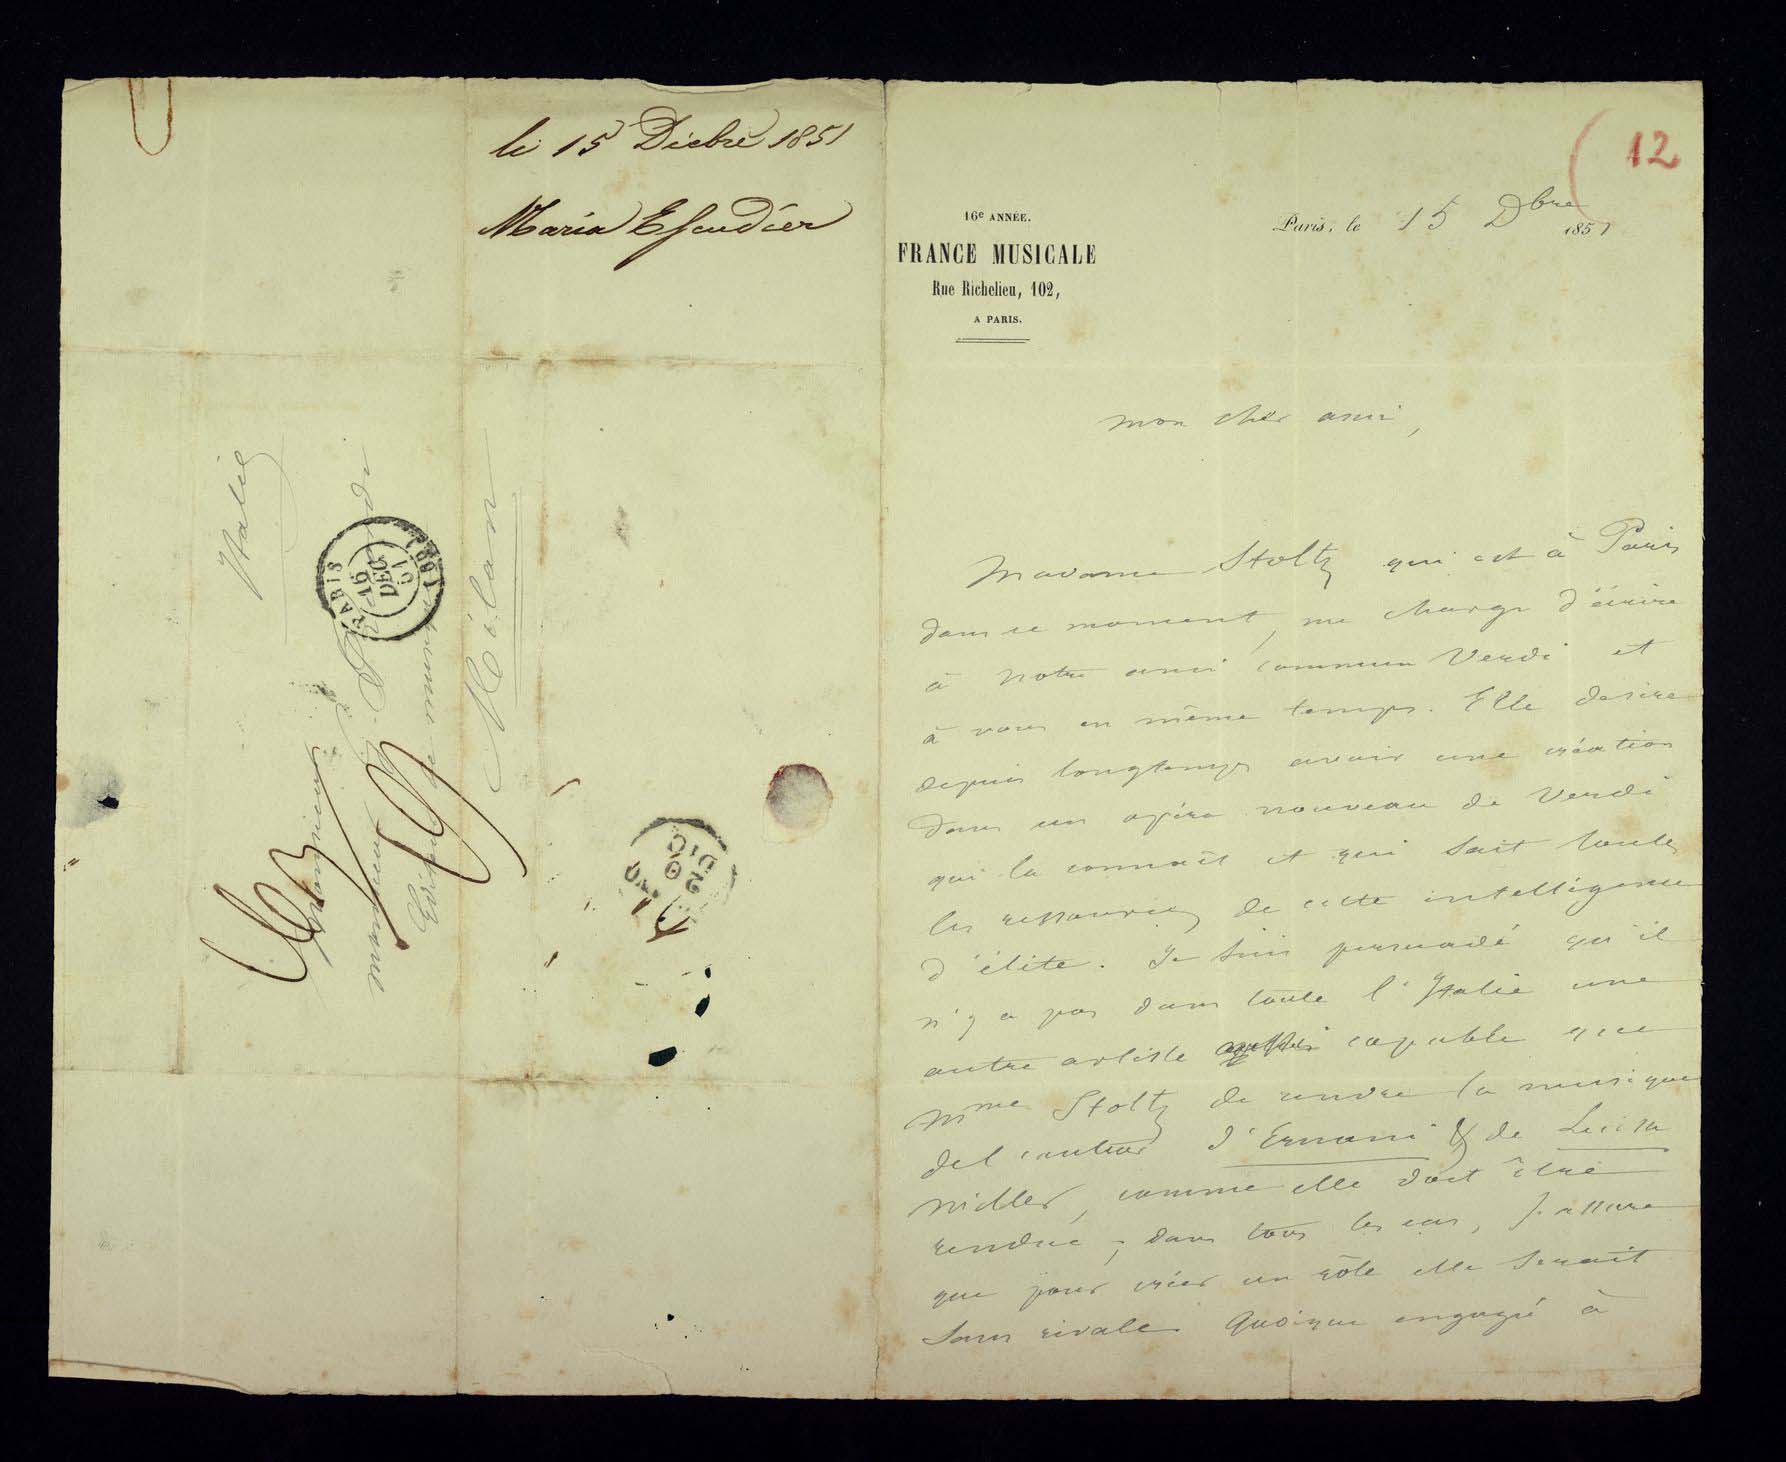 le 15 Dicbre 1851
Maria Escudier
Italie
Monsieur
Monsieur Ricordi
Editeur de musique
Milan
PARIS
16
DEC.
51
(60)
20
DIC
12
16e ANNÉE.
FRANCE MUSICALE
Rue Richelieu, 102,
A PARIS.
Paris, le 15 Dbre 1851
mon cher ami,
Madame Stoltz qui est à Paris
dans ce moment, me charge d'écrire
à notre ami commun Verdi et
à vous en même temps. Elle desire
depuis longtemps avoir une création
dans un opéra nouveau de Verdi
qui la connait et qui sait toutes
les ressources de cette intelligence
d'élite. Je suis persuadé qu'il
n'y a pas dans toute l'Italie une
autre artiste capable que
Mme Stoltz de rendre la musique
del'auteur d'Ernani & de Luisa
Miller, comme elle doit être
rendue ; dans tous les cas, j'assure
que pour créer un rôle elle serait
sans rivale. Quoique engagé à